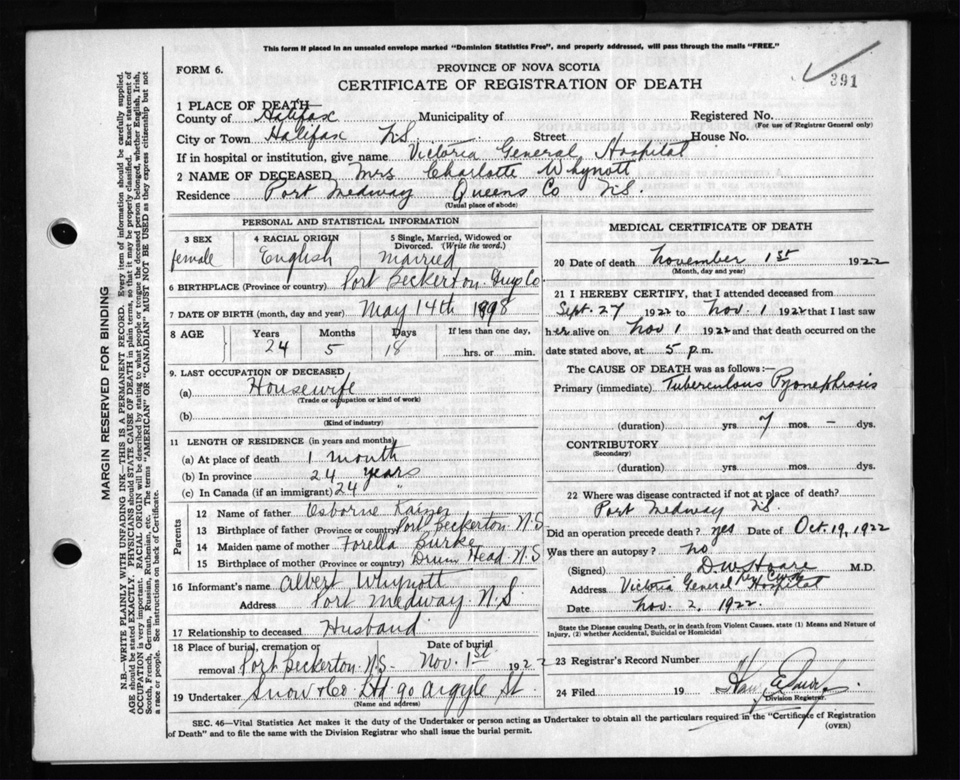 This form if placed in an unsealed envelope marked "Dominion Statistics Free", and properly addressed, will pass through the mails "FREE."
FORM 6.
PROVINCE OF NOVA SCOTIA
CERTIFICATE OF REGISTRATION OF DEATH
391
1 PLACE OF DEATH—
County of Halifax Municipality of Registered No.
(For use of Registrar General only)
City or Town Halifax N.S. Street House No.
If in hospital or institution, give name Victoria General Hospital
2 NAME OF DECEASED Mrs Charlotte Whynott
Residence Port Medway Queens Co N.S.
(Usual place of abode)
PERSONAL AND STATISTICAL INFORMATION
3 SEX 4 RACIAL ORIGIN 5 Single, Married, Widowed or Divorced. (Write the word.)
female English Married
6 BIRTHPLACE (Province or country) Port Beckerton. Guys Co
7 DATE OF BIRTH (month, day and year) May 14th 1898
8 AGE Years Months Days If less than one day,
24 5 18 hrs. or min.
9. LAST OCCUPATION OF DECEASED
(a) Housewife
(Trade or occupation or kind of work)
(b)
(Kind of industry)
11 LENGTH OF RESIDENCE (in years and months)
(a) At place of death 1 month
(b) In province 24 years
(c) In Canada (if an immigrant) 24 "
Parents
12 Name of father Osborne Kaizer
13 Birthplace of father (Province or country) Port Beckerton N.S
14 Maiden name of mother Forella Burke
15 Birthplace of mother (Province or country) Drum Head N.S
16 Informant's name Albert Whynott
Address Port Medway. N.S.
17 Relationship to deceased Husband
18 Place of burial, cremation or Date of burial
removal Port Beckerton. N.S. Nov. 1st 1922
19 Undertaker Snow & Co Ltd. 90 Argyle St.
(Name and address)
MEDICAL CERTIFICATE OF DEATH
20 Date of death November 1st 1922
(Month, day and year)
21 I HEREBY CERTIFY, that I attended deceased from
Sept. 27 1922 to Nov. 1 1922 that I last saw
her alive on Nov 1 1922 and that death occurred on the
date stated above, at 5 p.m.
The CAUSE OF DEATH was as follows:—
Primary (immediate) Tuberculous Pyonephrosis
(duration) yrs. 7 mos. – dys.
CONTRIBUTORY
(Secondary)
(duration) yrs. mos. dys.
22 Where was disease contracted if not at place of death?
Port Medway N.S.
Did an operation precede death? yes Date of Oct. 19, 1922
Was there an autopsy? no
(Signed) D.W. Hoare M.D.
Address Victoria General Hospital
Date Nov. 2, 1922.
State the Disease causing Death, or in death from Violent Causes, state (1) Means and Nature of
Injury, (2) whether Accidental, Suicidal or Homicidal
23 Registrar's Record Number
24 Filed 19
Division Registrar
SEC. 46—Vital Statistics Act makes it the duty of the Undertaker or person acting as Undertaker to obtain all the particulars required in the "Certificate of Registration
of Death" and to file the same with the Division Registrar who shall issue the burial permit.
(OVER)
MARGIN RESERVED FOR BINDING
N.B.—WRITE PLAINLY WITH UNFADING INK—THIS IS A PERMANENT RECORD. Every item of information should be carefully supplied.
AGE should be stated EXACTLY. PHYSICIANS should STATE CAUSE OF DEATH in plain terms, so that it may be properly classified. Exact statement of
OCCUPATION is very important. RACIAL ORIGIN will be described by stating to what people or tongue the deceased person belonged, whether English, Irish,
Scotch, French, German, Russian, Ruthenian, etc. The terms "AMERICAN" OR "CANADIAN" MUST NOT BE USED as they express citizenship but not
a race or people. See instructions on back of Certificate.